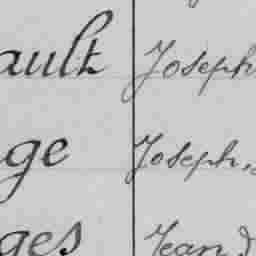 ault Joseph
ge Joseph,
ges Jean